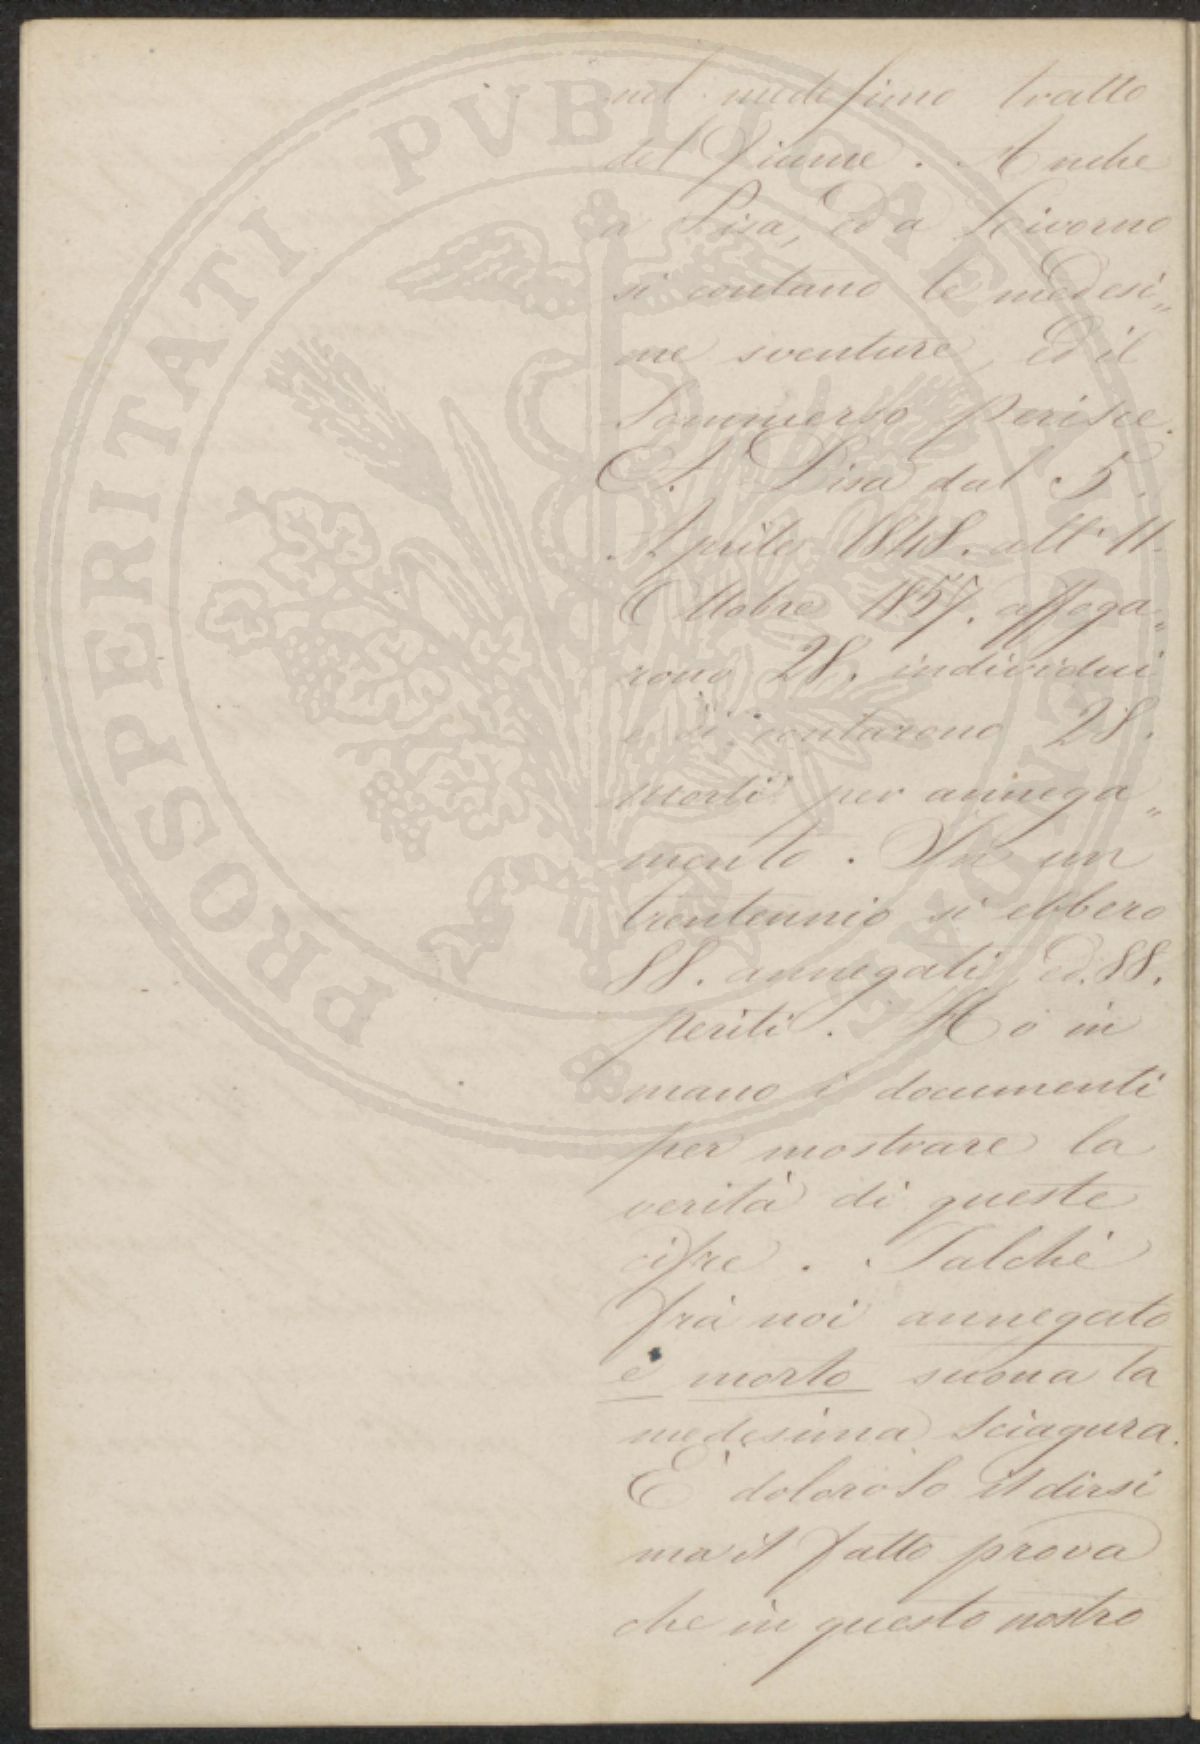 nel medesimo tratto
del fiume. Anche
a Pisa, ed a Livorno
si contano le medesi„
me sventure, ed il
Sommerso perisce.
A. Pisa dal 5.
Aprile 1848. all' 11.
Ottobre 1857. affoga„
rono 28. individui
e si contarono 28.
morti per annega„
mento. In un
trentennio si ebbero
88. annegati, ed. 88.
periti. Ho in
mano i documenti
per mostrare la
verità di queste
cifre. Talchè
frà noi annegato
e morto suona la
medesima Sciagura.
È doloroso il dirsi
ma il fatto prova
che in questo nostro
PROSPERITATI PVBLICAE AVGENDAE